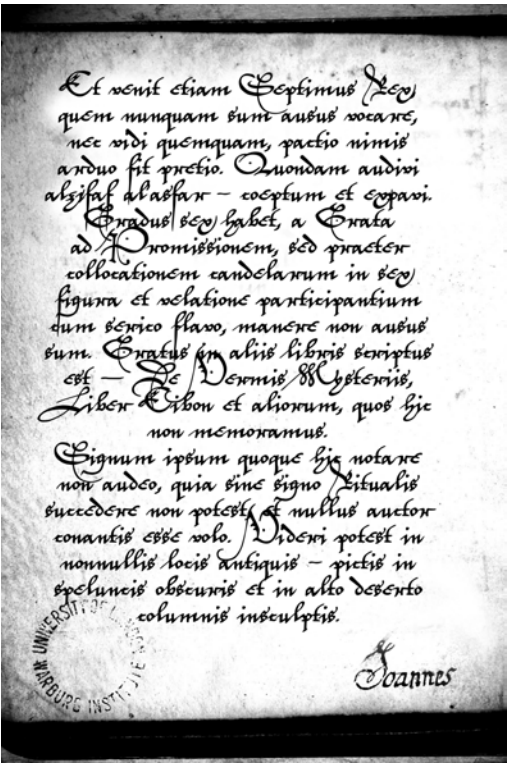 Et venit etiam Septimus Rex,
quem nunquam sum ausus vocare,
nec vidi quemquam, pactio nimis
arduo fit pretio. Quondam audivi
alzifaf al'asfar – coeptum et expavi.
Gradus sex habet, a Grata
ad Promissionem, sed praeter
collocationem candelarum in sex
figura et velatione participantium
cum serico flavo, manere non ausus
sum. Gratus in aliis libris scriptus
est – De Vermis Mysteriis,
Liber Eibon et aliorum, quos hic
non memoramus.
Signum ipsum quoque hic notare
non audeo, quia sine signo Ritualis
succedere non potest, et nullus auctor
conantis esse volo. Videri potest in
nonnullis locis antiquis – pictis in
speluncis obscuris et in alto deserto
columnis insculptis.
Joannes
UNIVERSITY OF LONDON
WARBURG INSTITUTE